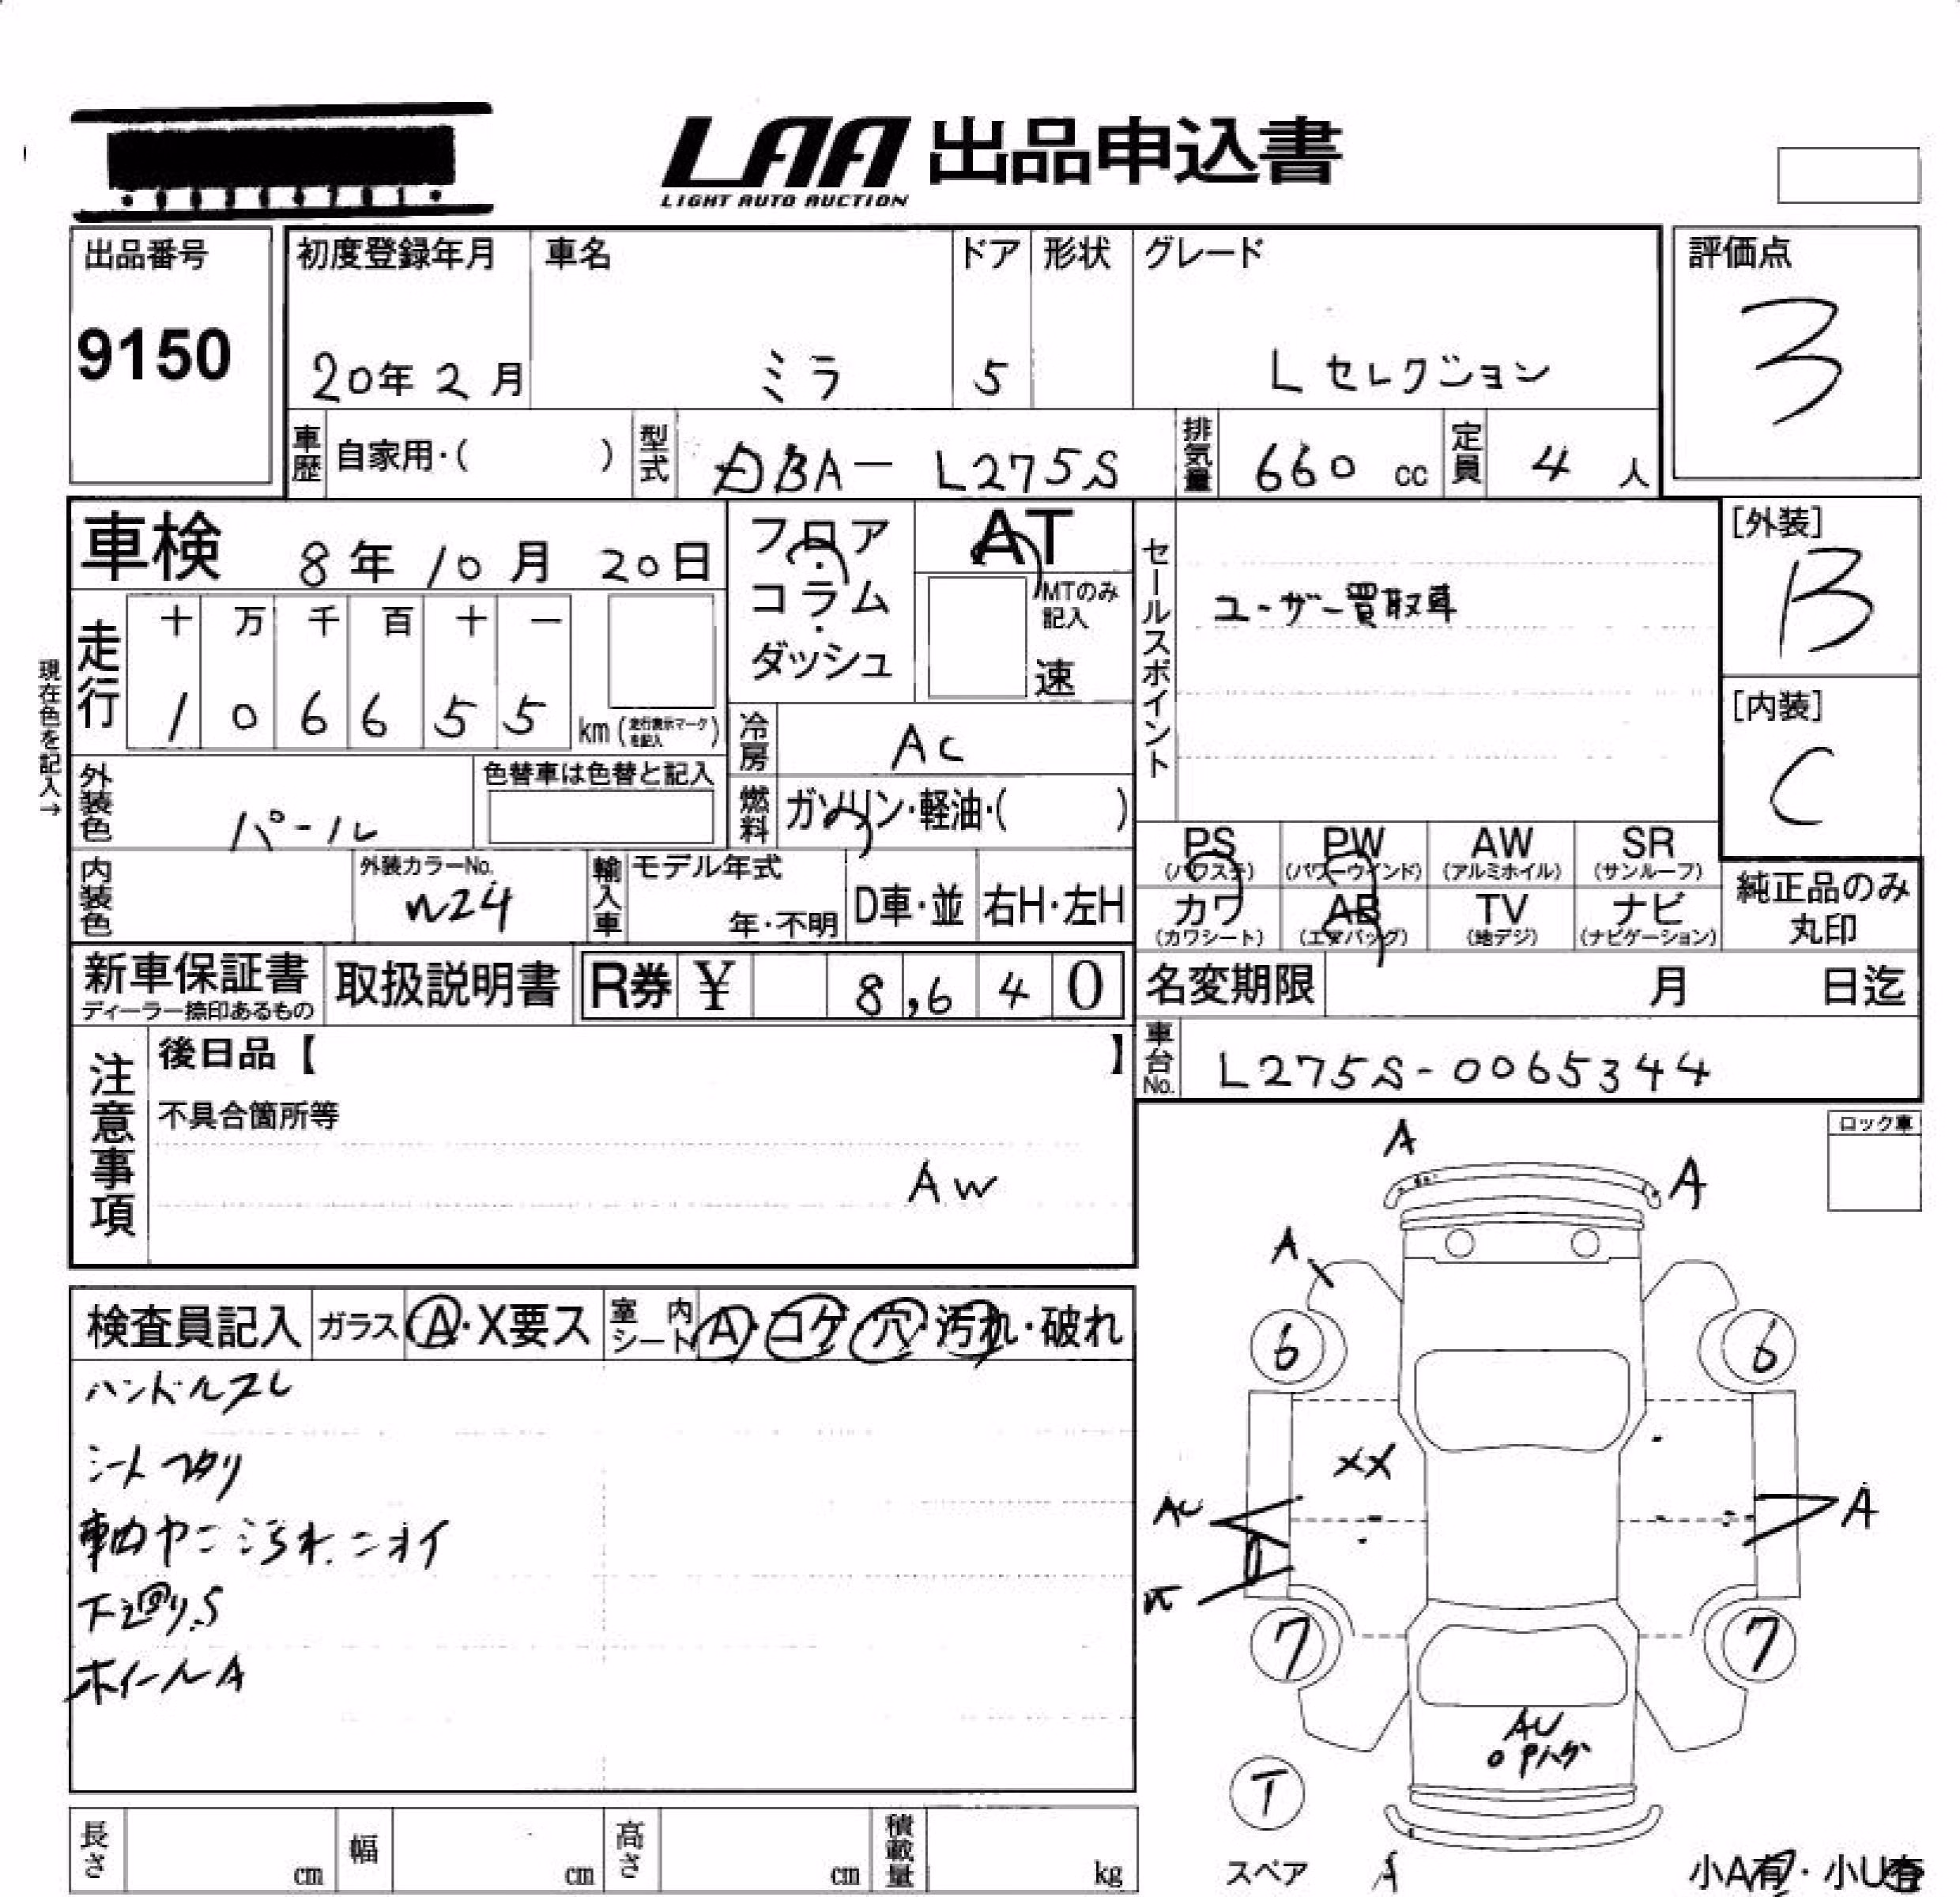 LAA 出品申込書
LIGHT AUTO AUCTION
出品番号
9150
初度登録年月
20年 2月
車名
ミラ
ドア
5
形状
グレード
L セレクション
評価点
3
車歴
自家用・( )
型式
DBA- L275S
排気量
660 cc
定員
4 人
車検 8年 10月 20日
フロア・コラム・ダッシュ
AT
MTのみ記入
速
セールスポイント
ユーザー買取車
[外装]
B
[内装]
C
現在色を記入→
走行
十 万 千 百 十 一
1 0 6 6 5 5
km (走行表示マークを記入)
冷房
AC
燃料
ガソリン・軽油・( )
外装色
パール
色替車は色替と記入
内装色
外装カラーNo.
W24
輸入車
モデル年式
年・不明
D車・並
右H・左H
PS
(パワステ)
PW
(パワーウインド)
AW
(アルミホイル)
SR
(サンルーフ)
カワ
(カワシート)
AB
(エアバッグ)
TV
(地デジ)
ナビ
(ナビゲーション)
純正品のみ
丸印
新車保証書
ディーラー捺印あるもの
取扱説明書
R券 ¥ 8,640
名変期限 月 日迄
車台No.
L275S-0065344
注意事項
後日品【 】
不具合箇所等
AW
ロック車
検査員記入
ガラス
A・X要ス
室内シート
A・コゲ・穴・汚れ・破れ
ハンドルスレ
シートヘタリ
車内ヤニ 汚れ ニオイ
下廻りS
ホイールA
A
A
A
6
6
XX
AU
A
7
7
AU
T
スペア
A
小A有・小U有
長さ
cm
幅
cm
高さ
cm
積載量
kg